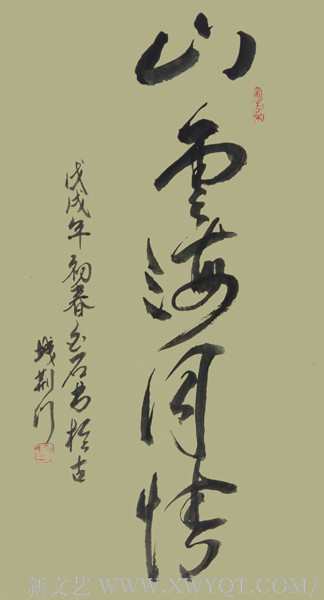 山雲海月情
戊戌年初春石书於古
城荆门
新文艺 WWW.XWYQT.COM/